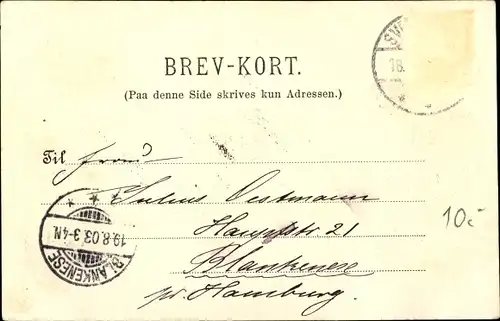 BREV-KORT.
(Paa denne Side skrives kun Adressen.)
Til Frau
Julius Oestmann
Hauptstr 21
Blankenese
pr. Hamburg.
10.-
18.
BLANKENESE
19.8.03 3-4N.